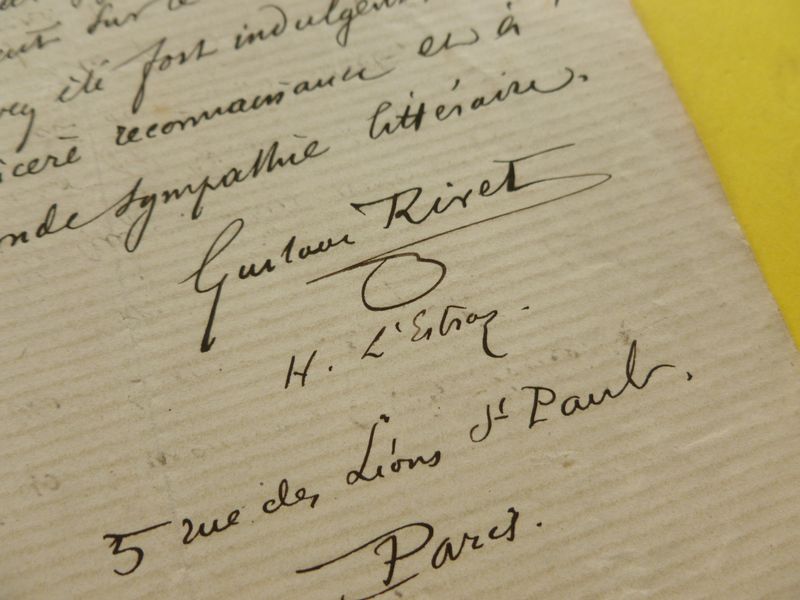 sur
été fort indulgent
reconnaissance et à
sympathie littéraire.
Gustave Rivet
H. L'Estraz.
5 rue des Lions St Paul.
Paris.